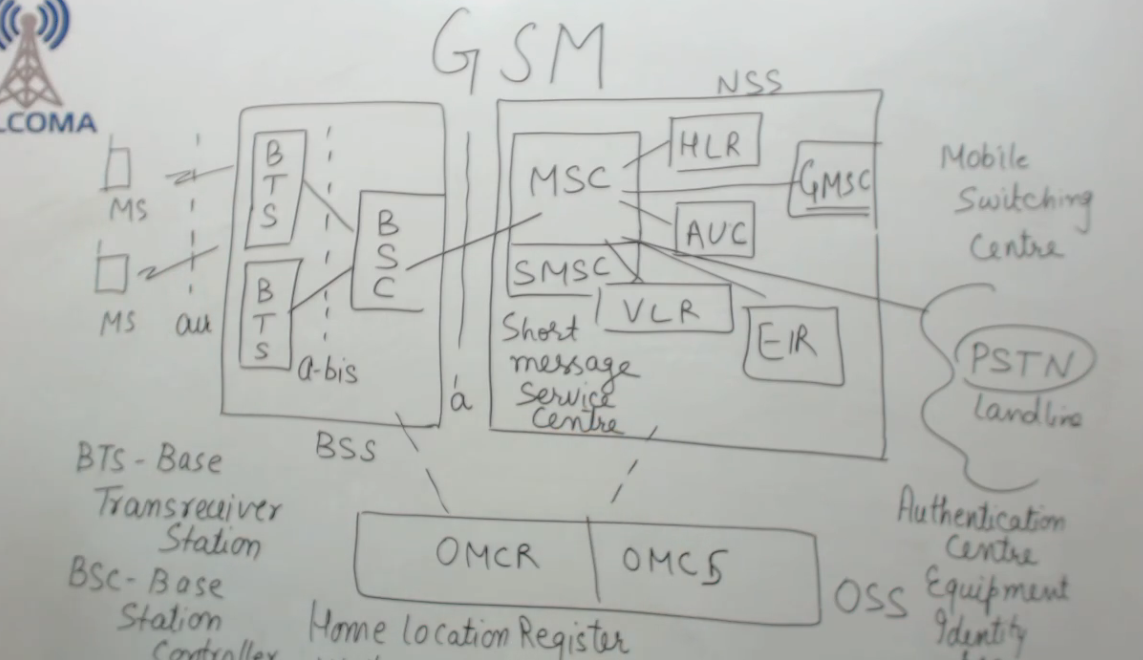 GSM
LCOMA
NSS
MS
MS
air
BTS
BTS
a-bis
BSC
BSS
a
MSC
SMSC
Short
message
Service
Centre
HLR
GMSC
AUC
VLR
EIR
Mobile
Switching
Centre
PSTN
landline
BTS - Base
Transreceiver
Station
BSC - Base
Station
Controller
OMCR
OMCS
OSS
Home Location Register
Authentication
Centre
Equipment
Identity